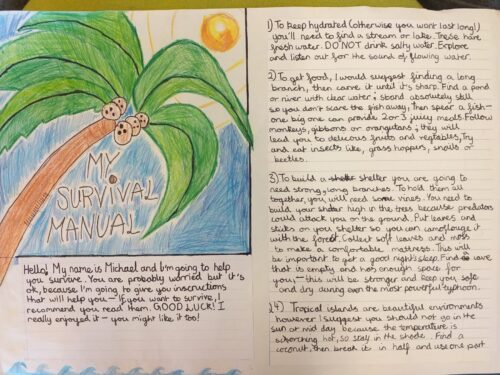 MY
SURVIVAL
MANUAL
Hello! My name is Michael and I'm going to help
you survive. You are probably worried but it's
ok, because I'm going to give you instructions
that will help you - If you want to survive, I
recommend you read them. GOOD LUCK! I
really enjoyed it - you might like it too!
1) To keep hydrated (otherwise you want last long!)
you'll need to find a stream or lake. These have
fresh water. DO NOT drink salty water. Explore
and listen out for the sound of flowing water.
2) To get food, I would suggest finding a long
branch, then carve it until it's sharp. Find a pond
or river with clear water; stand absolutely still
so you don't scare the fish away, then spear a fish -
one big one can provide 2 or 3 juicy meals. Follow
monkeys, gibbons or orangutans; they will
lead you to delicious fruits and vegtables, Try
and eat insects like, grass hoppers, snails or
beetles.
3) To build a shelter you are going to
need strong, long branches. To hold them all
together, you will need some vines. You need to
build your shelter high in the trees because predators
could attack you on the ground. Put leaves and
sticks on you shelter so you can camoflouge it
with the forest. Collect soft leaves and moss
to make a comfortable mattress. This will
be important to get a good night's sleep. Find a cave
that is empty and has enough space for
you, - this will be stronger and keep you safe
and dry during even the most powerful typhoon.
4) Tropical islands are beautiful environments
however I suggest you should not go in the
sun at mid day because the temperature is
scorching hot, so stay in the shade. Find a
coconut, then break it in half and use one part